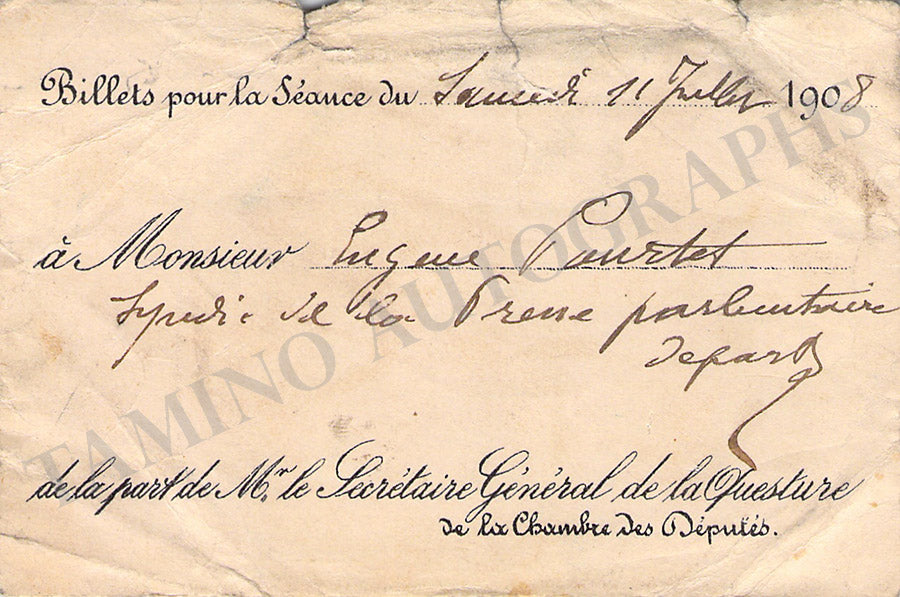 Billets pour la Séance du Samedi 11 Juillet 1908
à Monsieur Eugène Pourtet
Syndic de la Presse parlementaire
départ
de la part de Mr. le Secrétaire Général de la Questure
de la Chambre des Députés.
TAMINO AUTOGRAPHS